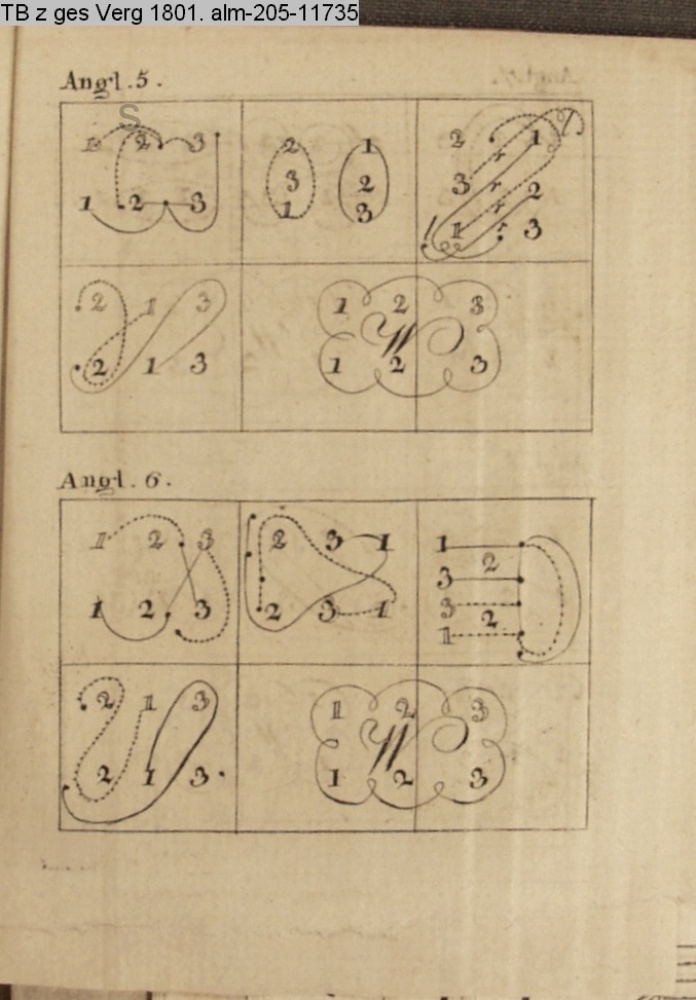 TB z ges Verg 1801. alm-205-11735
Angl. 5.
S
1 2 3
1 2 3
2 1
3 2
1 3
2 1
3 2
1 3
r
r
r
r
2 1 3
2 1 3
1 2 3
W
1 2 3
Angl. 6.
1 2 3
1 2 3
2 3 1
2 3 1
1
2
3
3
2
1
2 1 3
2 1 3.
1 2 3
W
1 2 3